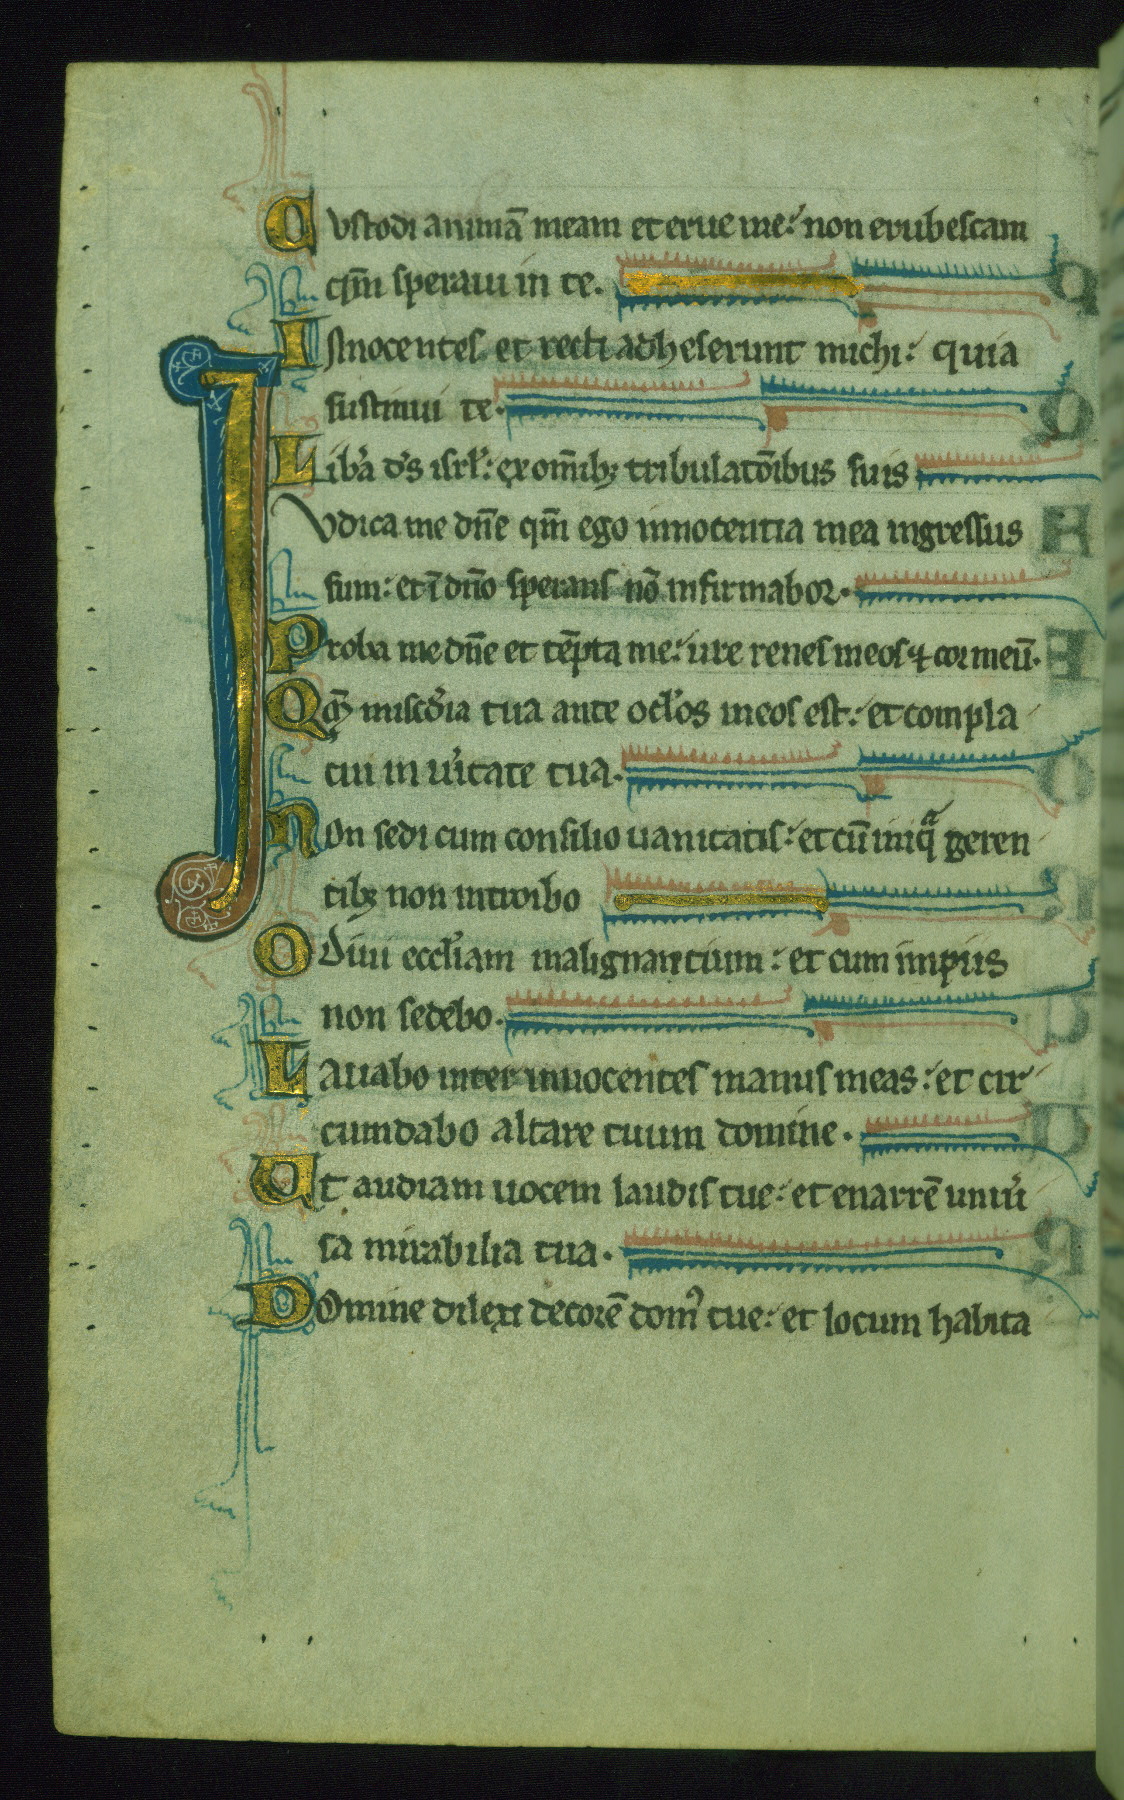 Cvstodi animā meam et erue me: non erubescam
qm̄ speraui in te.
Innocentes et recti adheserunt michi: quia
sustinui te.
Libˀa dˀs isrl̄: ex om̄ibꝫ tribulatōibus suis
Iudica me dn̄e qm̄ ego innocentia mea ingressus
sum: et ī dn̄o sperans nō infirmabor.
Proba me dn̄e et tēpta me: ure renes meos ⁊ cor meū.
Qm̄ mis̄cdˀia tua ante oclˀos meos est: et compla
cui in uˀitate tua.
Non sedi cum consilio uanitatis: et cū iniqᵃ geren
tibꝫ non introibo
Odiui ecclˀiam malignantium: et cum impiis
non sedebo.
Lauabo inter innocentes manus meas: et cir
cumdabo altare tuum domine.
Ut audiam uocem laudis tue: et enarrē uniuˀ
sa mirabilia tua.
Domine dilexi decorē domꝰ tue: et locum habita